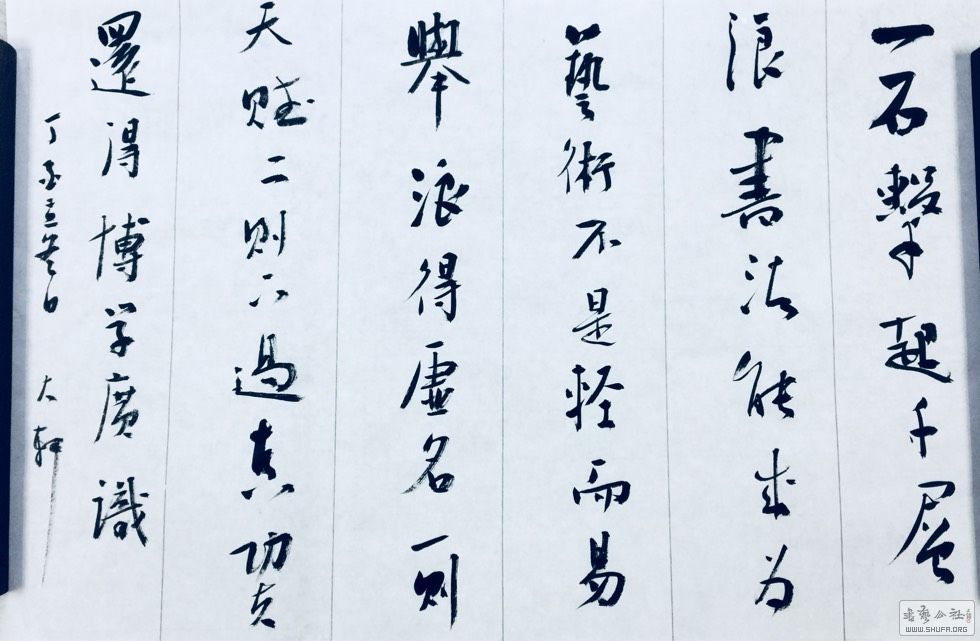 一石擊起千層
浪書法能成為
藝術不是輕而易
舉浪得虛名一則
天賦二則下過真功夫
還得博學廣識
丁 日 大軒
書藝公社
WWW.SHUFA.ORG